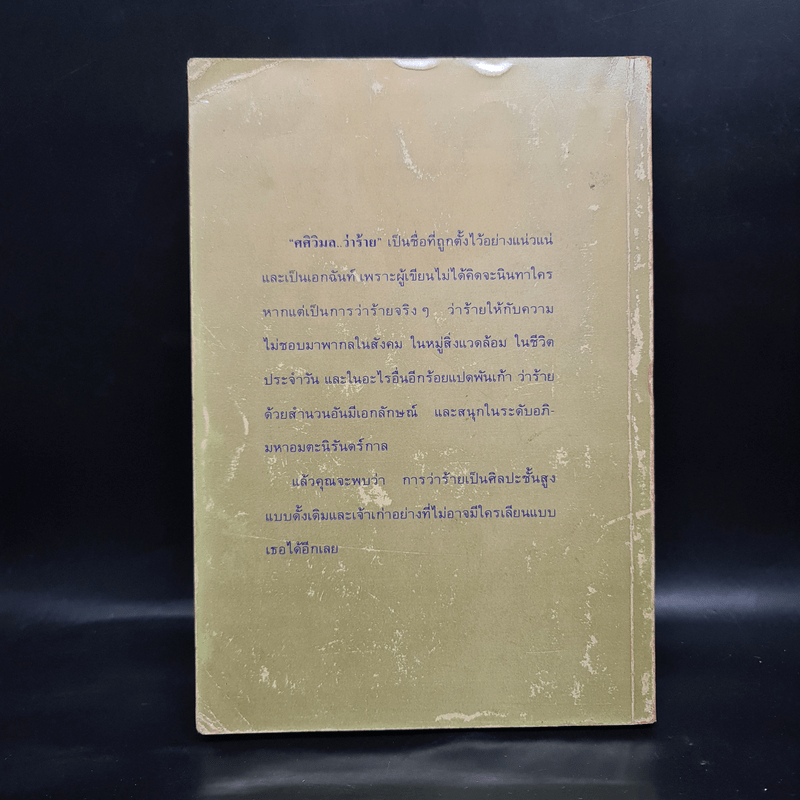 "ศศิวิมล..ว่าร้าย" เป็นชื่อที่ถูกตั้งไว้อย่างแน่วแน่
และเป็นเอกฉันท์ เพราะผู้เขียนไม่ได้คิดจะนินทาใคร
หากแต่เป็นการว่าร้ายจริง ๆ ว่าร้ายให้กับความ
ไม่ชอบมาพากลในสังคม ในหมู่สิ่งแวดล้อม ในชีวิต
ประจำวัน และในอะไรอื่นอีกร้อยแปดพันเก้า ว่าร้าย
ด้วยสำนวนอันมีเอกลักษณ์ และสนุกในระดับอภิ-
มหาอมตะนิรันดร์กาล
แล้วคุณจะพบว่า การว่าร้ายเป็นศิลปะชั้นสูง
แบบดั้งเดิมและเจ้าเก่าอย่างที่ไม่อาจมีใครเลียนแบบ
เธอได้อีกเลย